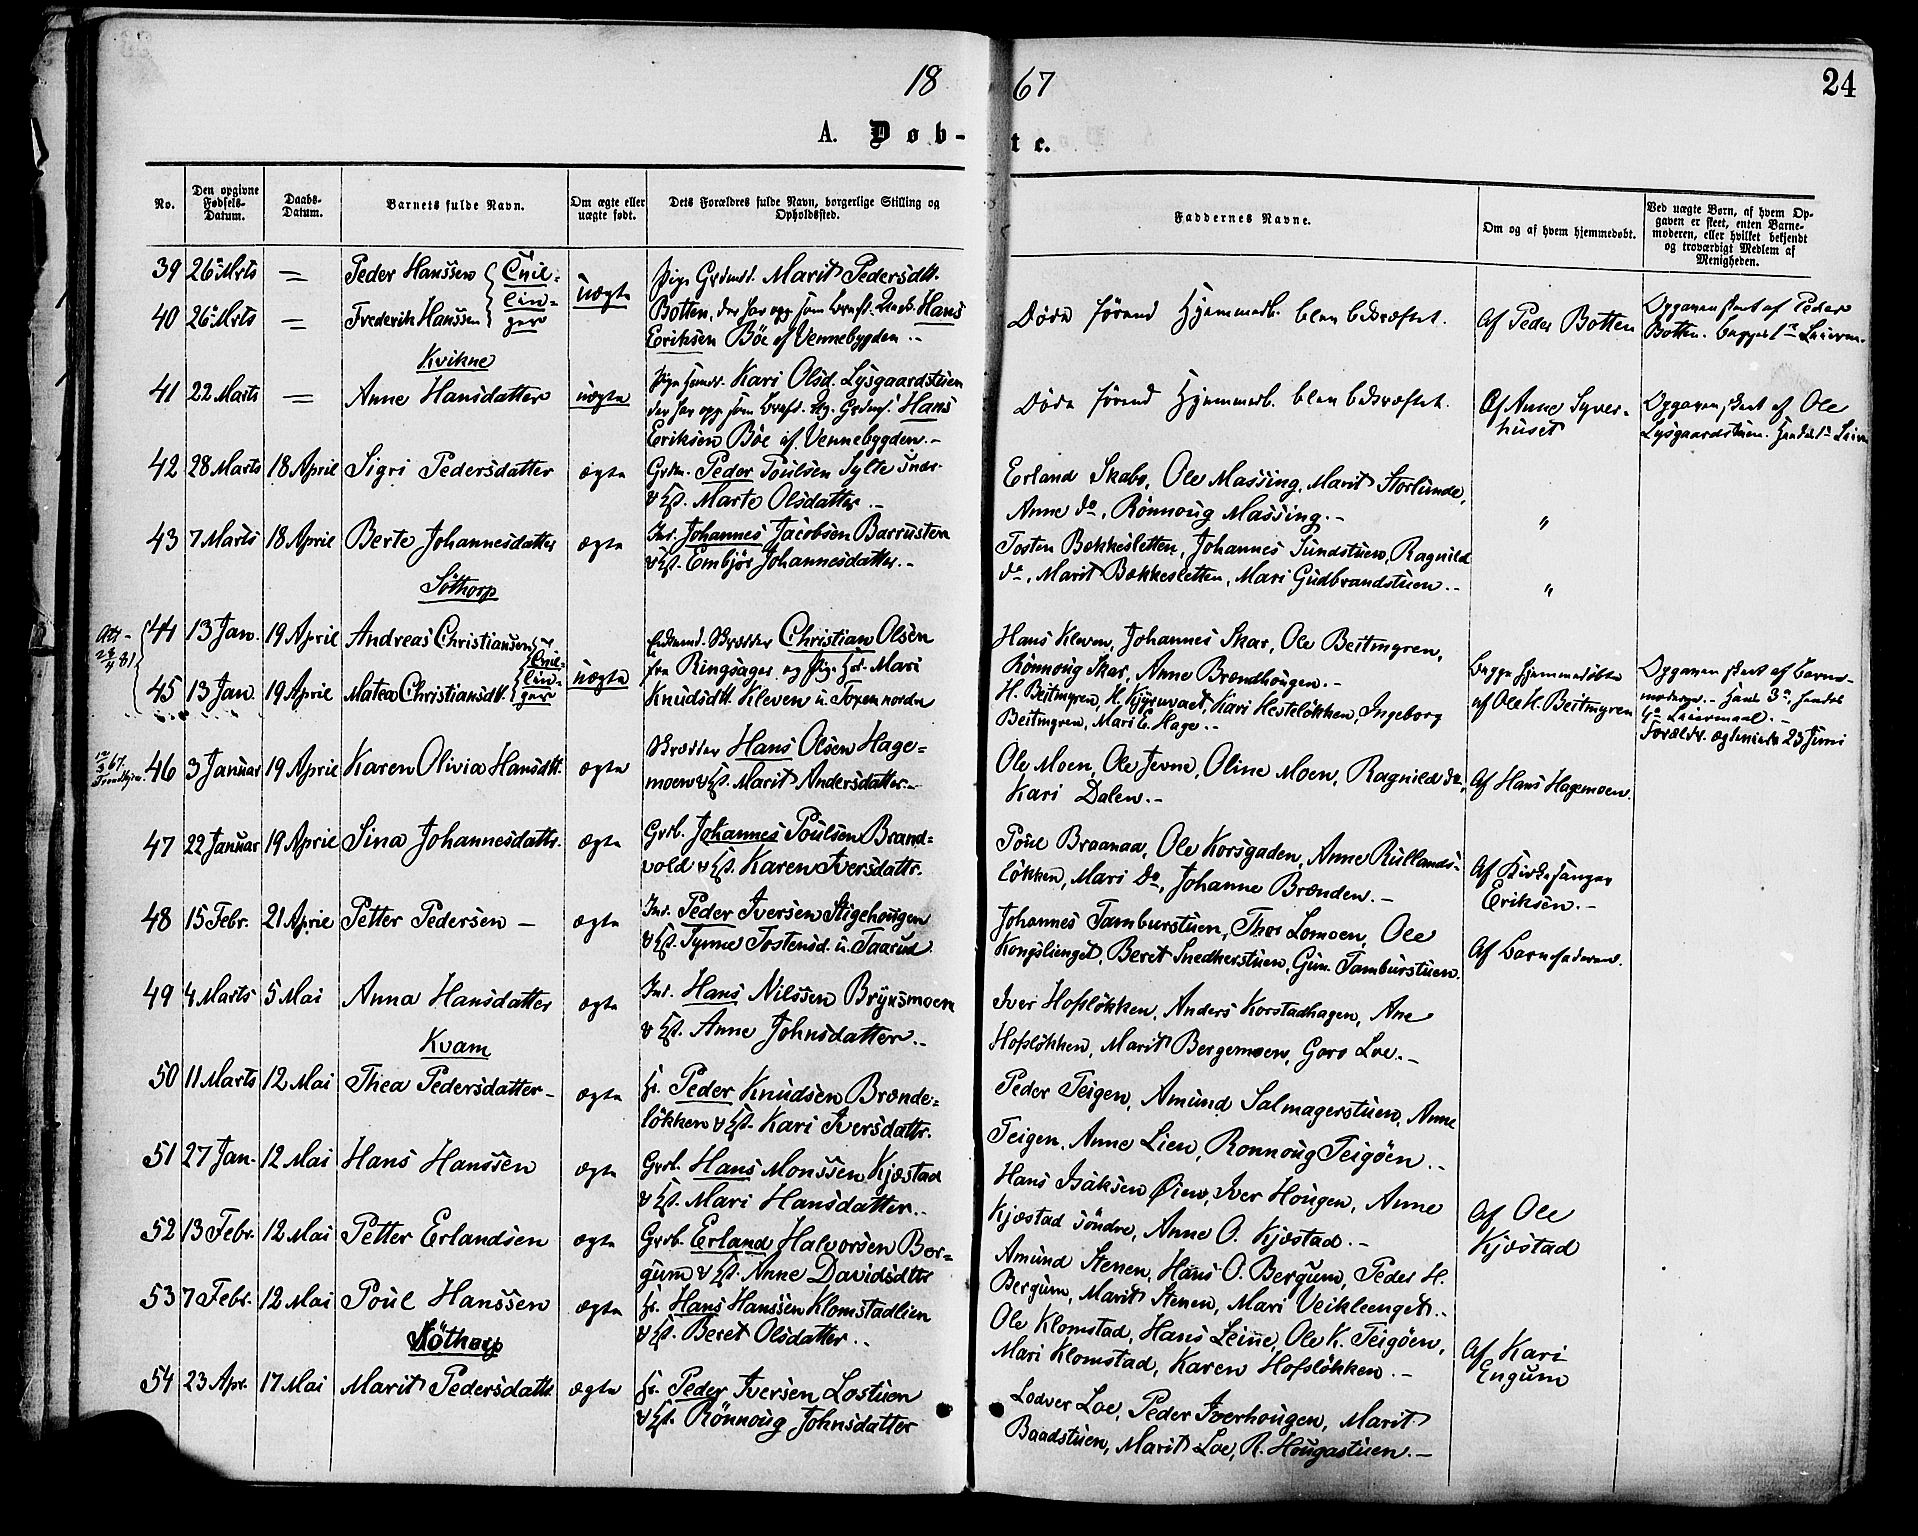 1867
24
A. Døbte.
No.
Den opgivne Fødsels-Datum.
Daabs-Datum.
Barnets fulde Navn.
Om ægte eller uægte født.
Dets Forældres fulde Navn, borgerlige Stilling og Opholdssted.
Faddernes Navne.
Om og af hvem hjemmedøbt.
Ved uægte Børn, af hvem Opgaven er skeet, enten Barnemoderen, eller hvilket bekjendt og troværdigt Medlem af Menigheden.
39 26 Mrts — Peder Hanssen Tvil-
40 26 Mrts — Frederik Hanssen lin-
ger
uægte
Pige Grdmd. Marit Pedersdtt.
Botten, der har opg. som Brnf. Hans
Eriksen Böe af Vennebygden
Døde førend Hjemmedb. blev bekræftet.
Af Peder Botten
Opgaven skeet af Peder
Botten. begges 1ste Leierm.
Kvikne
41 22 Marts — Anne Hansdatter uægte
Pige Kari Olsd. Lysgaardstuen
der har opg. som Brnf. Hans
Eriksen Böe af Vennebygden.-
Døde førend Hjemmedb. blev bekræftet.
Af Anne Syver-
huset
Opgaven skeet af Ole
Lysgaardstuen.
42 28 Marts 18 April Sigri Pedersdatter ægte
Grdm. Peder Poulsen Sylte
& Hst. Marte Olsdatter.-
Erland Skabo, Ole Massing, Marit Storlunde,
Anne do, Rönnoug Massing.-
"
43 7 Marts 18 April Berte Johannesdatter ægte
Ind. Johannes Jacobsen Barrusten
& Hst. Embjør Johannesdatter.-
Tosten Bekkesletten, Johannes Sundstuen, Ragnild
do, Marit Bækkesletten, Mari Gudbrandstuen.-
"
Söthorp
44 13 Jan. 19 April Andreas Christiansen Tvil-
45 13 Jan. 19 April Matea Christiansdtt. lin-
ger
uægte
Enkemd. Skræder Christian Olsen
fra Ringsager og Pige Mari
Knudsdtt. Kleven u. Toxen nordre
Hans Kleven, Johannes Skar, Ole Beitmyren,
Rönnoug Skar, Anne Brændhougen.-
H. Beitmyren, Kari Hesteløkken, Ingeborg
Beitmyren, Mari E. Hage.-
Begge hjemmedøbte
af Ole H. Beitmyren
Opgaven skeet af Barne-
moderen.- Hans 3die, hendes
Leiermaal.-
Foræld. ægteviede 23 Juni
46 3 Januar 19 April Karen Olivia Hansdtt. ægte
Skræder Hans Olsen Hage-
moen & Hst. Marit Andersdatter.-
Ole Moen, Ole Jevne, Oline Moen, Ragnild do,
Kari Dalen.-
Af Hans Hagemoen.
47 22 Januar 19 April Sina Johannesdattr. ægte
Grdb. Johannes Poulsen Brand-
vold & Hst. Karen Iversdattr.
Poul Braanaa, Ole Korsgaden, Anne Rullands-
løkken, Mari do, Johanne Brænden.-
Af Kirkesanger
Eriksen.-
48 15 Febr. 21 April Petter Pedersen - ægte
Ind. Peder Iversen Stigehougen
& Hst. Synne Tostensd. u. Taarud
Johannes Tamburstuen, Thor Lomoen, Ole
Kongslienget, Beret Snedkerstuen, Gun. Tamburstuen.
Af Barnefaderen.
49 4 Marts 5 Mai Anna Hansdatter ægte
Ind. Hans Nilssen Brynsmoen
& Hst. Anne Johnsdatter.-
Iver Hofsløkken, Anders Korstadhagen, Ane
Hofsløkken, Marit Bergemoen, Goro Loe.-
Kvam
50 11 Marts 12 Mai Thea Pedersdatter - ægte
Peder Knudsen Brænde-
løkken & Hst. Kari Iversdattr.
Peder Teigen, Amund Salmagerstuen, Anne
Teigen, Anne Lien, Ronnoug Teigöen.-
51 27 Jan. 12 Mai Hans Hanssen ægte
Grdb. Hans Monssen Kjæstad
& Hst. Mari Hansdatter.-
Hans Isaksen Øien, Iver Hougen, Anne
Kjæstad söndre, Anne O. Kjæstad.-
Af Ole
Kjæstad
52 13 Febr. 12 Mai Petter Erlandsen ægte
Grdb. Erland Halvorsen Ber-
gum & Hst. Anne Davidsdttr
Amund Stenen, Hans O. Bergum, Peder H.
Bergum, Marit Stenen, Mari Veikleenget.-
53 7 Febr. 12 Mai Poul Hanssen ægte
Hans Hanssen Klomstadlien
& Hst. Beret Olsdatter.-
Ole Klomstad, Hans Leine, Ole K. Teigöen,
Mari Klomstad, Karen Hofsløkken.-
Af Kari
Engum
Söthorp
54 23 Apr. 17 Mai Marit Pedersdattr. ægte
Peder Iversen Lostuen
& Hst. Rönnoug Johnsdatter
Lodver Loe, Peder Iverhougen, Marit
Baadstuen, Marit Loe, R. Hougastuen.-